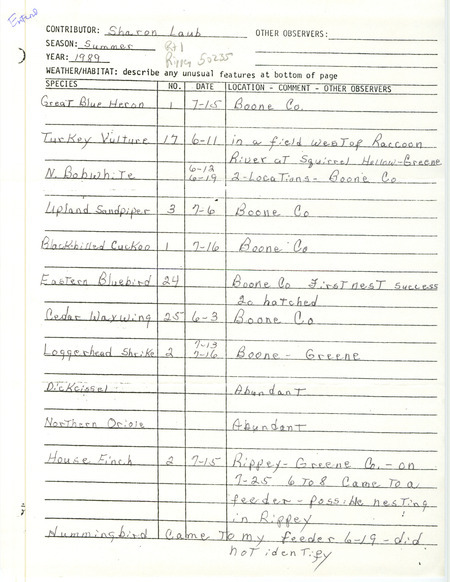 Entered
CONTRIBUTOR: Sharon Laub OTHER OBSERVERS:
SEASON: Summer Rt 1
YEAR: 1989 Rippey 50235
WEATHER/HABITAT: describe any unusual features at bottom of page
SPECIES NO. DATE LOCATION - COMMENT - OTHER OBSERVERS
Great Blue Heron 1 7-15 Boone Co.
Turkey Vulture 17 6-11 in a field west of Raccoon
River at Squirrel Hollow-Greene
N. Bobwhite 6-12 6-19 2-Locations- Boone Co
Upland Sandpiper 3 7-6 Boone Co
Blackbilled Cuckoo 1 7-16 Boone Co
Eastern Bluebird 24 Boone Co First nest success
20 hatched
Cedar Waxwing 25 6-3 Boone Co
Loggerhead Shrike 2 7-13 7-16 Boone - Greene
Dickcissel Abundant
Northern Oriole Abundant
House Finch 2 7-15 Rippey- Greene Co. - on
7-25 6 to 8 Came to a
feeder - possible nesting
in Rippey
Hummingbird Came to my feeder 6-19 - did
not identify